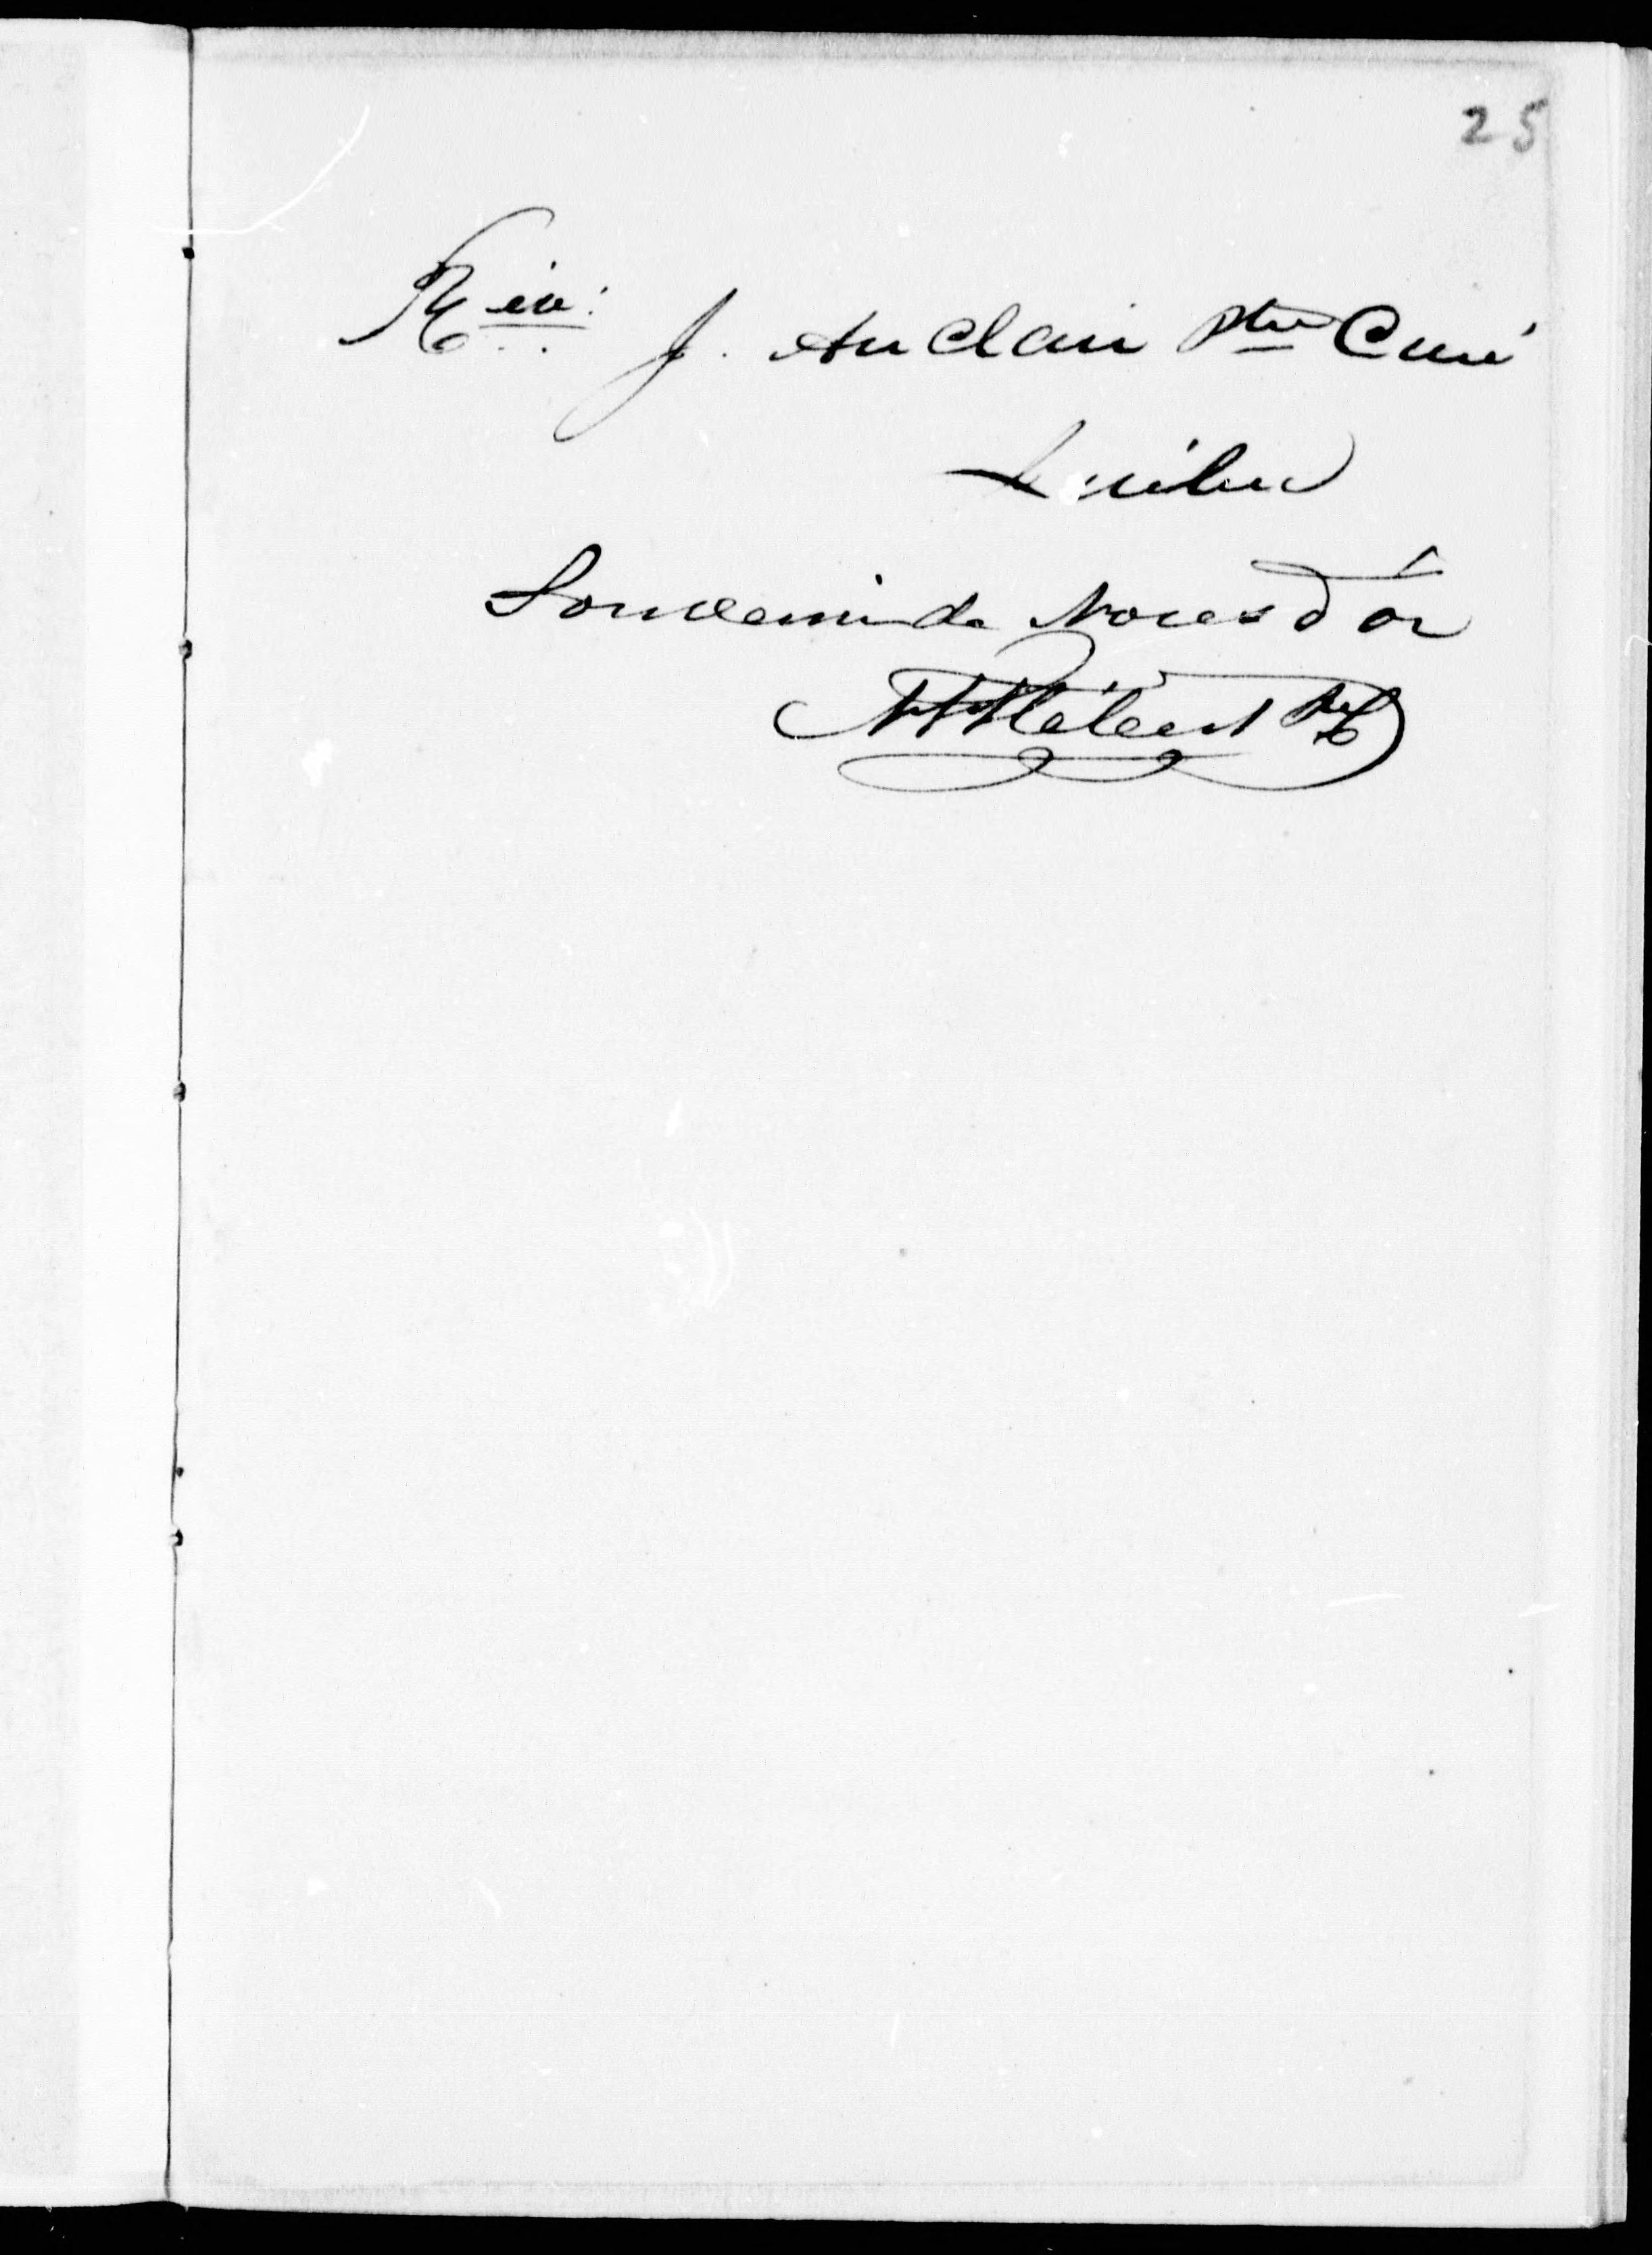 25
Rév: J. Auclair Ptre Curé
Québec
Souvenir de Noces d'or
N T Hébert Ptre